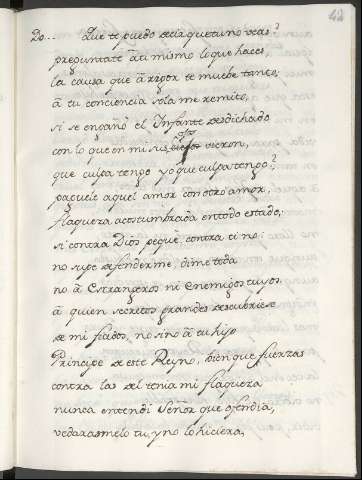 42
Do... Que te puedo decir que tu no veas?
preguntate ā ti mismo lo que haces,
la causa que ā razon te muebe tengo;
ā tu conciencia sola me remito,
si se engañó el Infante desdichado
ojos
con lo que en mi sus vieron,
que culpa tengo yo que culpa tengo?,
paguele aquel amor con otro amor,
flaqueza acostumbrada en todo estado;
si contra Dios pequè, contra ti no:
no supe defenderme, dime toda
no ā Estrangeros ni Enemigos tuyos,
ā quien secretos grandes descubriese
de mi fiados, no sino ā tu hijo
Principe de este Reyno, bien que fuerzas
contra las del tenia mi flaqueza
nunca entendi Señor que ofendia,
vedarasmelo tu, y no lo hiciera,